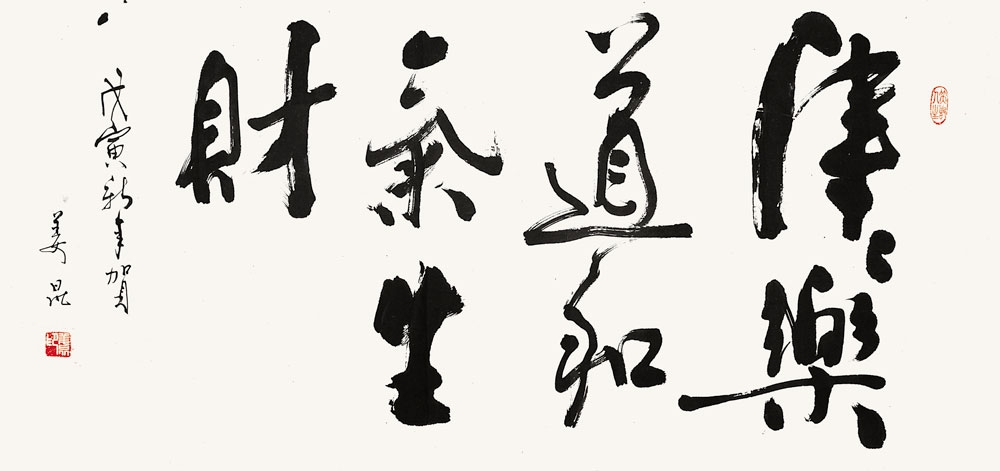 津〻樂
道和
氣生
財
戊寅新年賀
姜昆